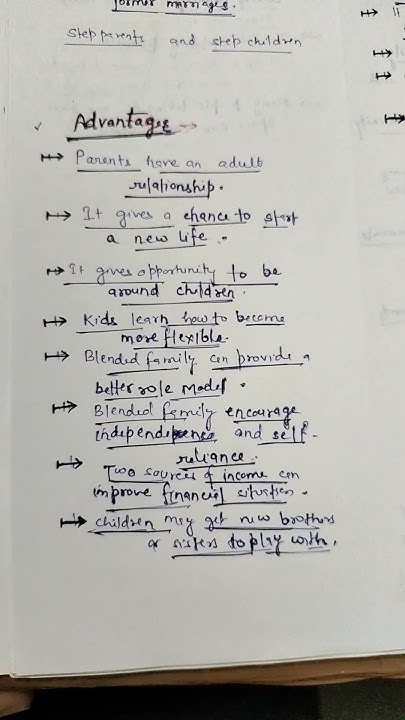 former marriages.
Step parents and step children
✓ Advantages →
↦ Parents have an adult
relationship.
↦ It gives a chance to start
a new life.
↦ It gives opportunity to be
around children.
↦ Kids learn how to become
more flexible.
↦ Blended family can provide a
better role model.
↦ Blended family encourage
independence and self-
reliance.
↦ Two sources of income can
improve financial situation.
↦ children may get new brothers
or sisters to play with.
↦ It